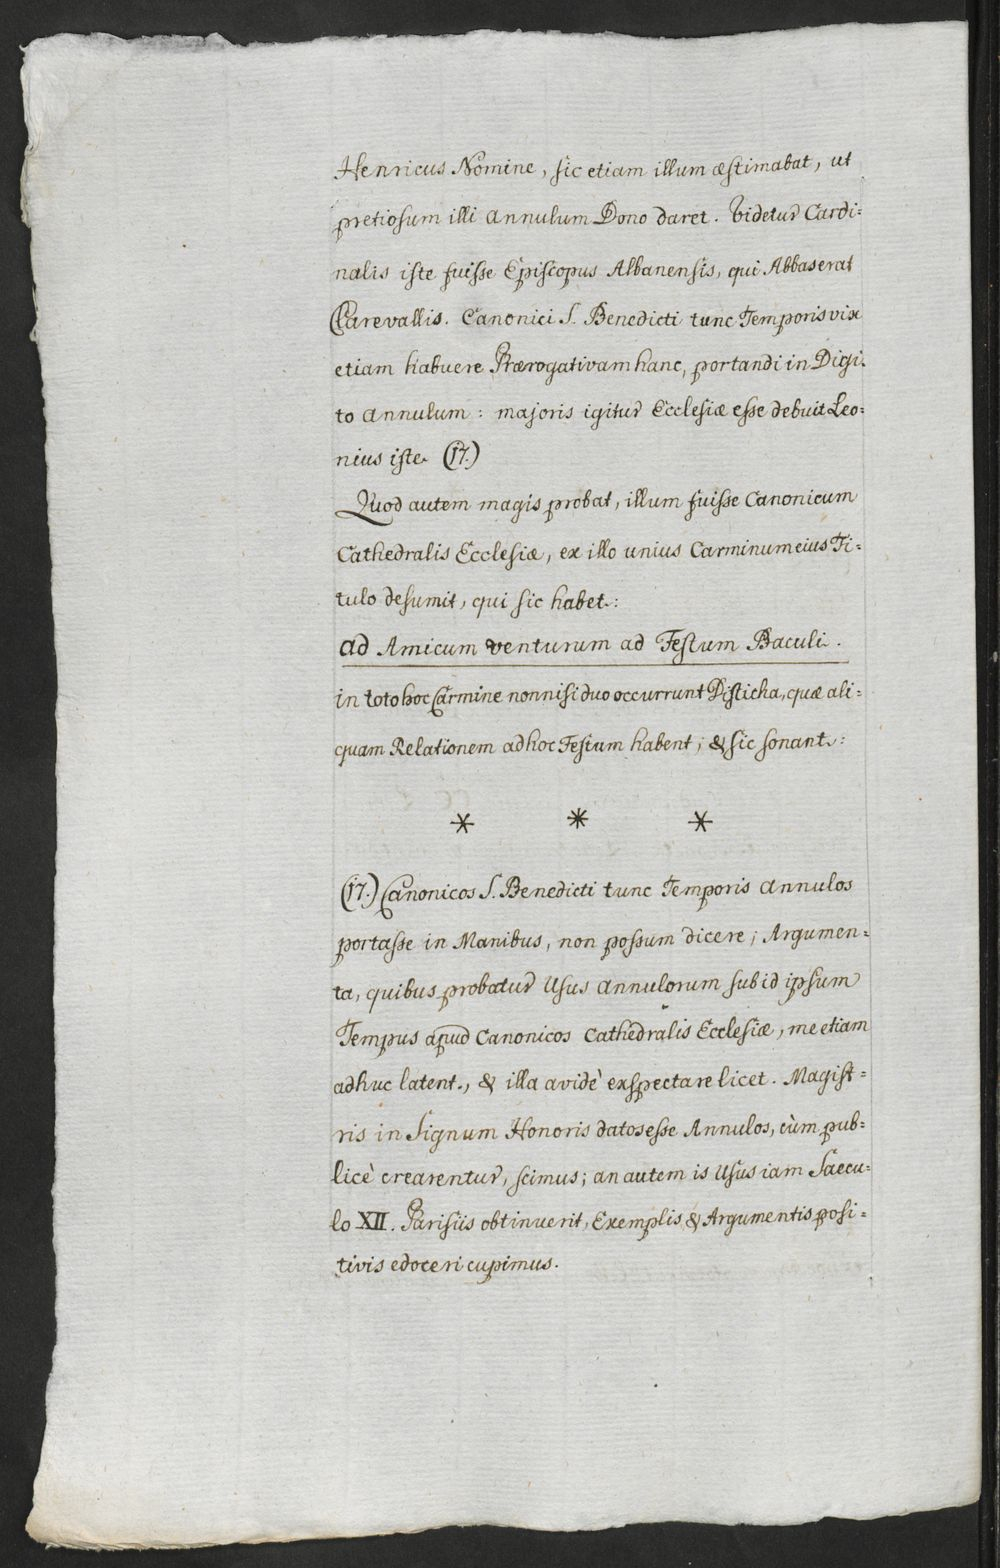 Henricus Nomine, sic etiam illum æstimabat, ut
pretiosum illi Annulum Dono daret. Videtur Cardi=
nalis iste fuisse Episcopus Albanensis, qui Abbas erat
Clarevallis. Canonici S. Benedicti tunc Temporis vix
etiam habuere Prærogativam hanc, portandi in Digi=
to Annulum: majoris igitur Ecclesiæ esse debuit Leo=
nius iste. (17.)
Quod autem magis probat, illum fuisse Canonicum
Cathedralis Ecclesiæ, ex illo unius Carminum eius Ti=
tulo desumit, qui sic habet:
ad Amicum venturum ad Festum Baculi.
in toto hoc Carmine nonnisi duo occurrunt Disticha, quæ ali=
quam Relationem ad hoc Festum habent; & sic sonant:
* * *
(17.) Canonicos S. Benedicti tunc Temporis Annulos
portasse in Manibus, non possum dicere; Argumen=
ta, quibus probatur Usus Annulorum sub id ipsum
Tempus apud Canonicos Cathedralis Ecclesiæ, me etiam
adhuc latent, & illa avidè exspectare licet. Magist=
ris in Signum Honoris datos esse Annulos, cùm pub=
licè crearentur, scimus; an autem is Usus iam Saecu=
lo XII. Parisiis obtinuerit, Exemplis, & Argumentis posi=
tivis edoceri cupimus.